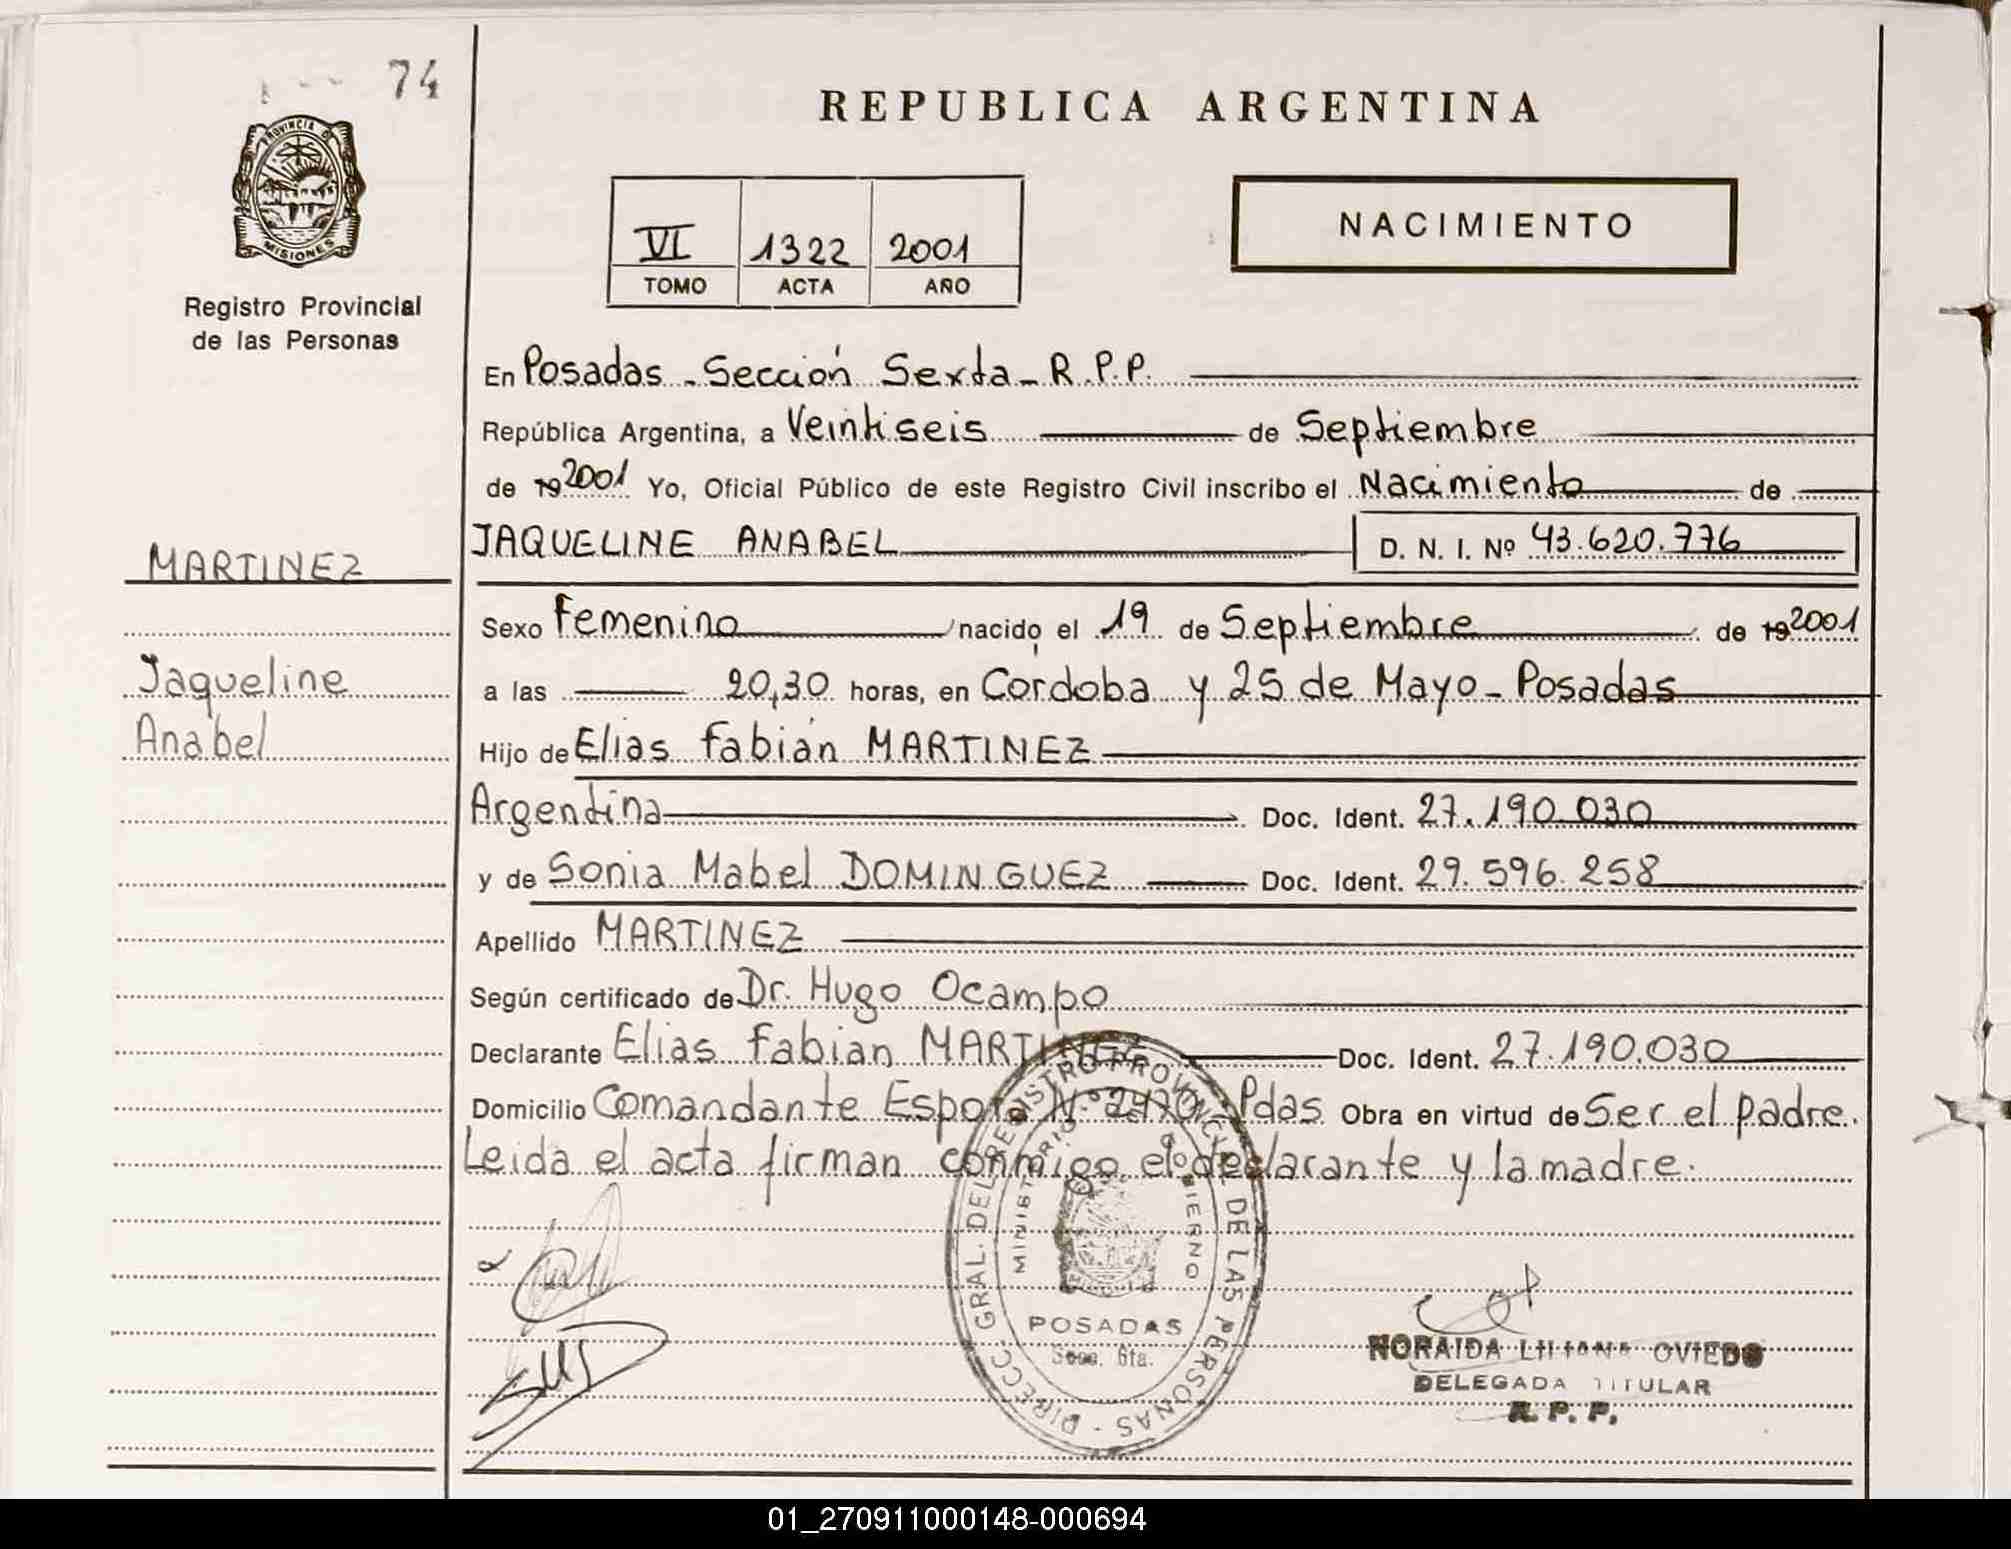 74
PROVINCIA DE
MISIONES
Registro Provincial
de las Personas
MARTINEZ
Jaqueline
Anabel
REPUBLICA ARGENTINA
VI 1322 2001
TOMO ACTA AÑO
NACIMIENTO
En Posadas - Sección Sexta - R.P.P.
República Argentina, a Veintiseis de Septiembre
de 19 2001 Yo, Oficial Público de este Registro Civil inscribo el Nacimiento de
JAQUELINE ANABEL D. N. I. Nº 43.620.776
Sexo Femenino nacido el 19 de Septiembre de 19 2001
a las 20,30 horas, en Córdoba y 25 de Mayo - Posadas
Hijo de Elias Fabián MARTINEZ
Argentina Doc. Ident. 27.190.030
y de Sonia Mabel DOMINGUEZ Doc. Ident. 29.596.258
Apellido MARTINEZ
Según certificado de Dr. Hugo Ocampo
Declarante Elias Fabian MARTINEZ Doc. Ident. 27.190.030
Domicilio Comandante Espora Nº 2470 - Pdas Obra en virtud de Ser el padre.
Leida el acta firman conmigo el declarante y la madre.
DIRECC. GRAL. DEL REGISTRO PROVINCIAL DE LAS PERSONAS
MINISTERIO DE GOBIERNO
POSADAS
Secc. 6ta.
NORAIDA LILIANA OVIEDO
DELEGADA TITULAR
R. P. P.
01_270911000148-000694